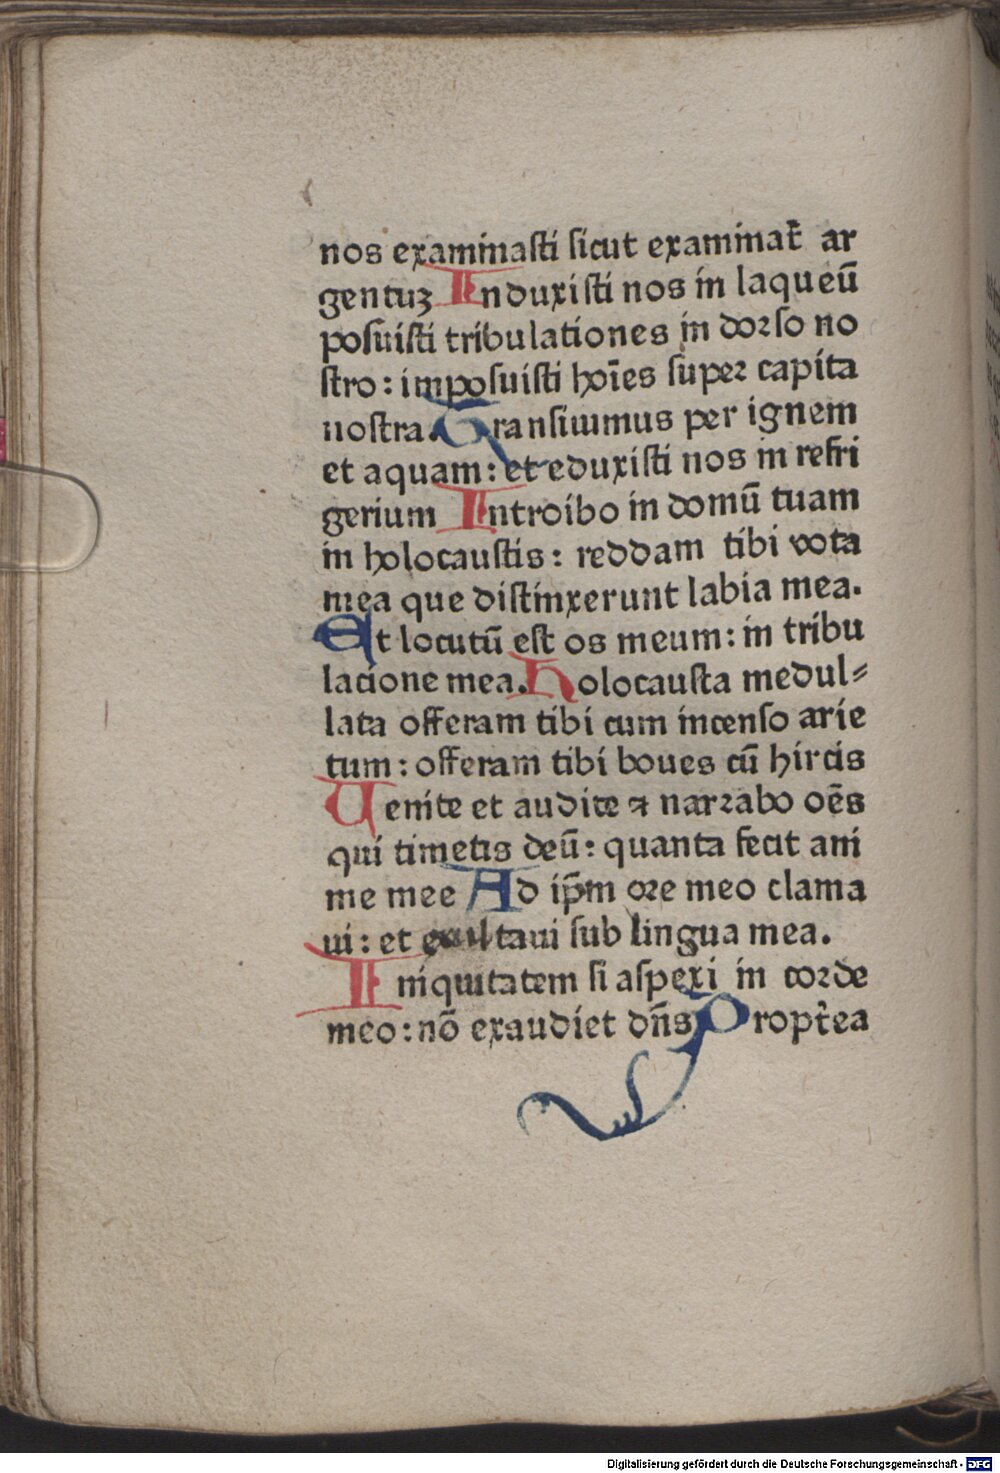 nos examinasti sicut examinat᷑ ar
gentuꝫ Induxisti nos in laqueū
posuisti tribulationes in dorso no
stro: imposuisti hoīes super capita
nostra. Transiuimus per ignem
et aquam: et eduxisti nos in refri
gerium Introibo in domū tuam
in holocaustis: reddam tibi vota
mea que distinxerunt labia mea.
Et locutū est os meum: in tribu
lacione mea. Holocausta medul⸗
lata offeram tibi cum incenso arie
tum: offeram tibi boues cū hircis
Uenite et audite ⁊ narrabo oēs
qui timetis deū: quanta fecit ani
me mee Ad ip̄m ore meo clama
ui: et exultaui sub lingua mea.
Iniquitatem si aspexi in corde
meo: nō exaudiet dn̄s Propt᷑ea
Digitalisierung gefördert durch die Deutsche Forschungsgemeinschaft - DFG